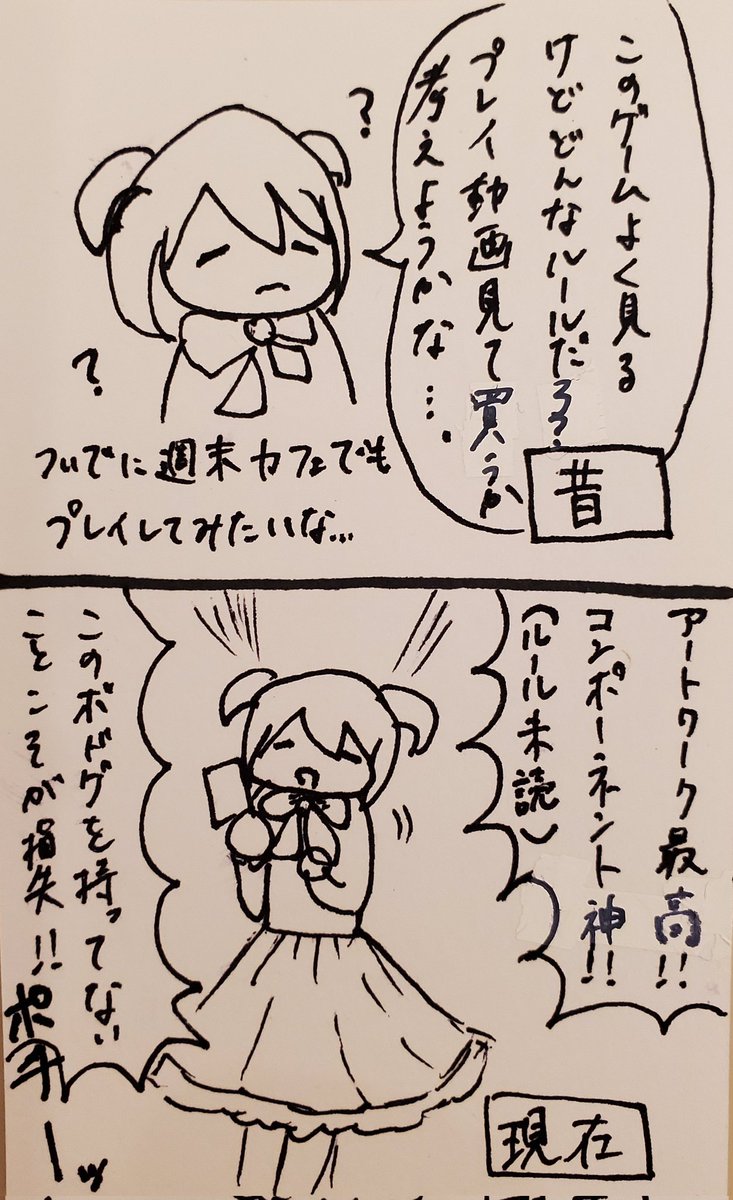 このゲームよく見る
けどどんなルールだろう?
プレイ動画見て買うか
考えようかな…。
昔
?
?
ついでに週末カフェでも
プレイしてみたいな…
アートワーク最高!!
コンポーネント神!!
(ルール未読)
このボドゲを持ってない
ことこそが損失!!
ポチーッ
現在